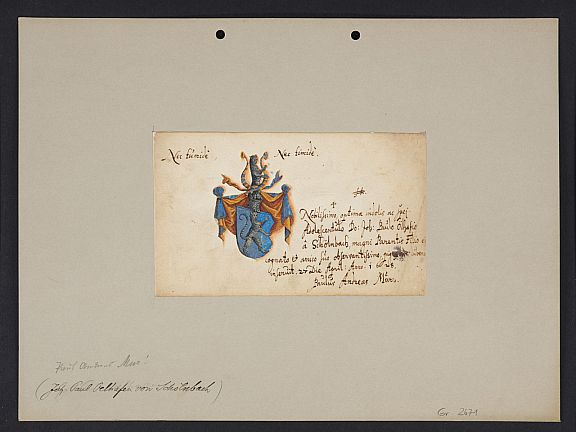 Nec tumidè. Nec timidè.
Nobilissimo, optimæ indolis ac spei
Adolescentulo Dn: Joh: Paulo Ölhafio
à Schölnbach magni Parentis Filio
cognato et amico suo observantissimo,
inseruit. Die April: Anno
Paulus Andreas
Paul Andreas
(Joh. Paul Oelhafen von Schölnbach)
Gr. 2671